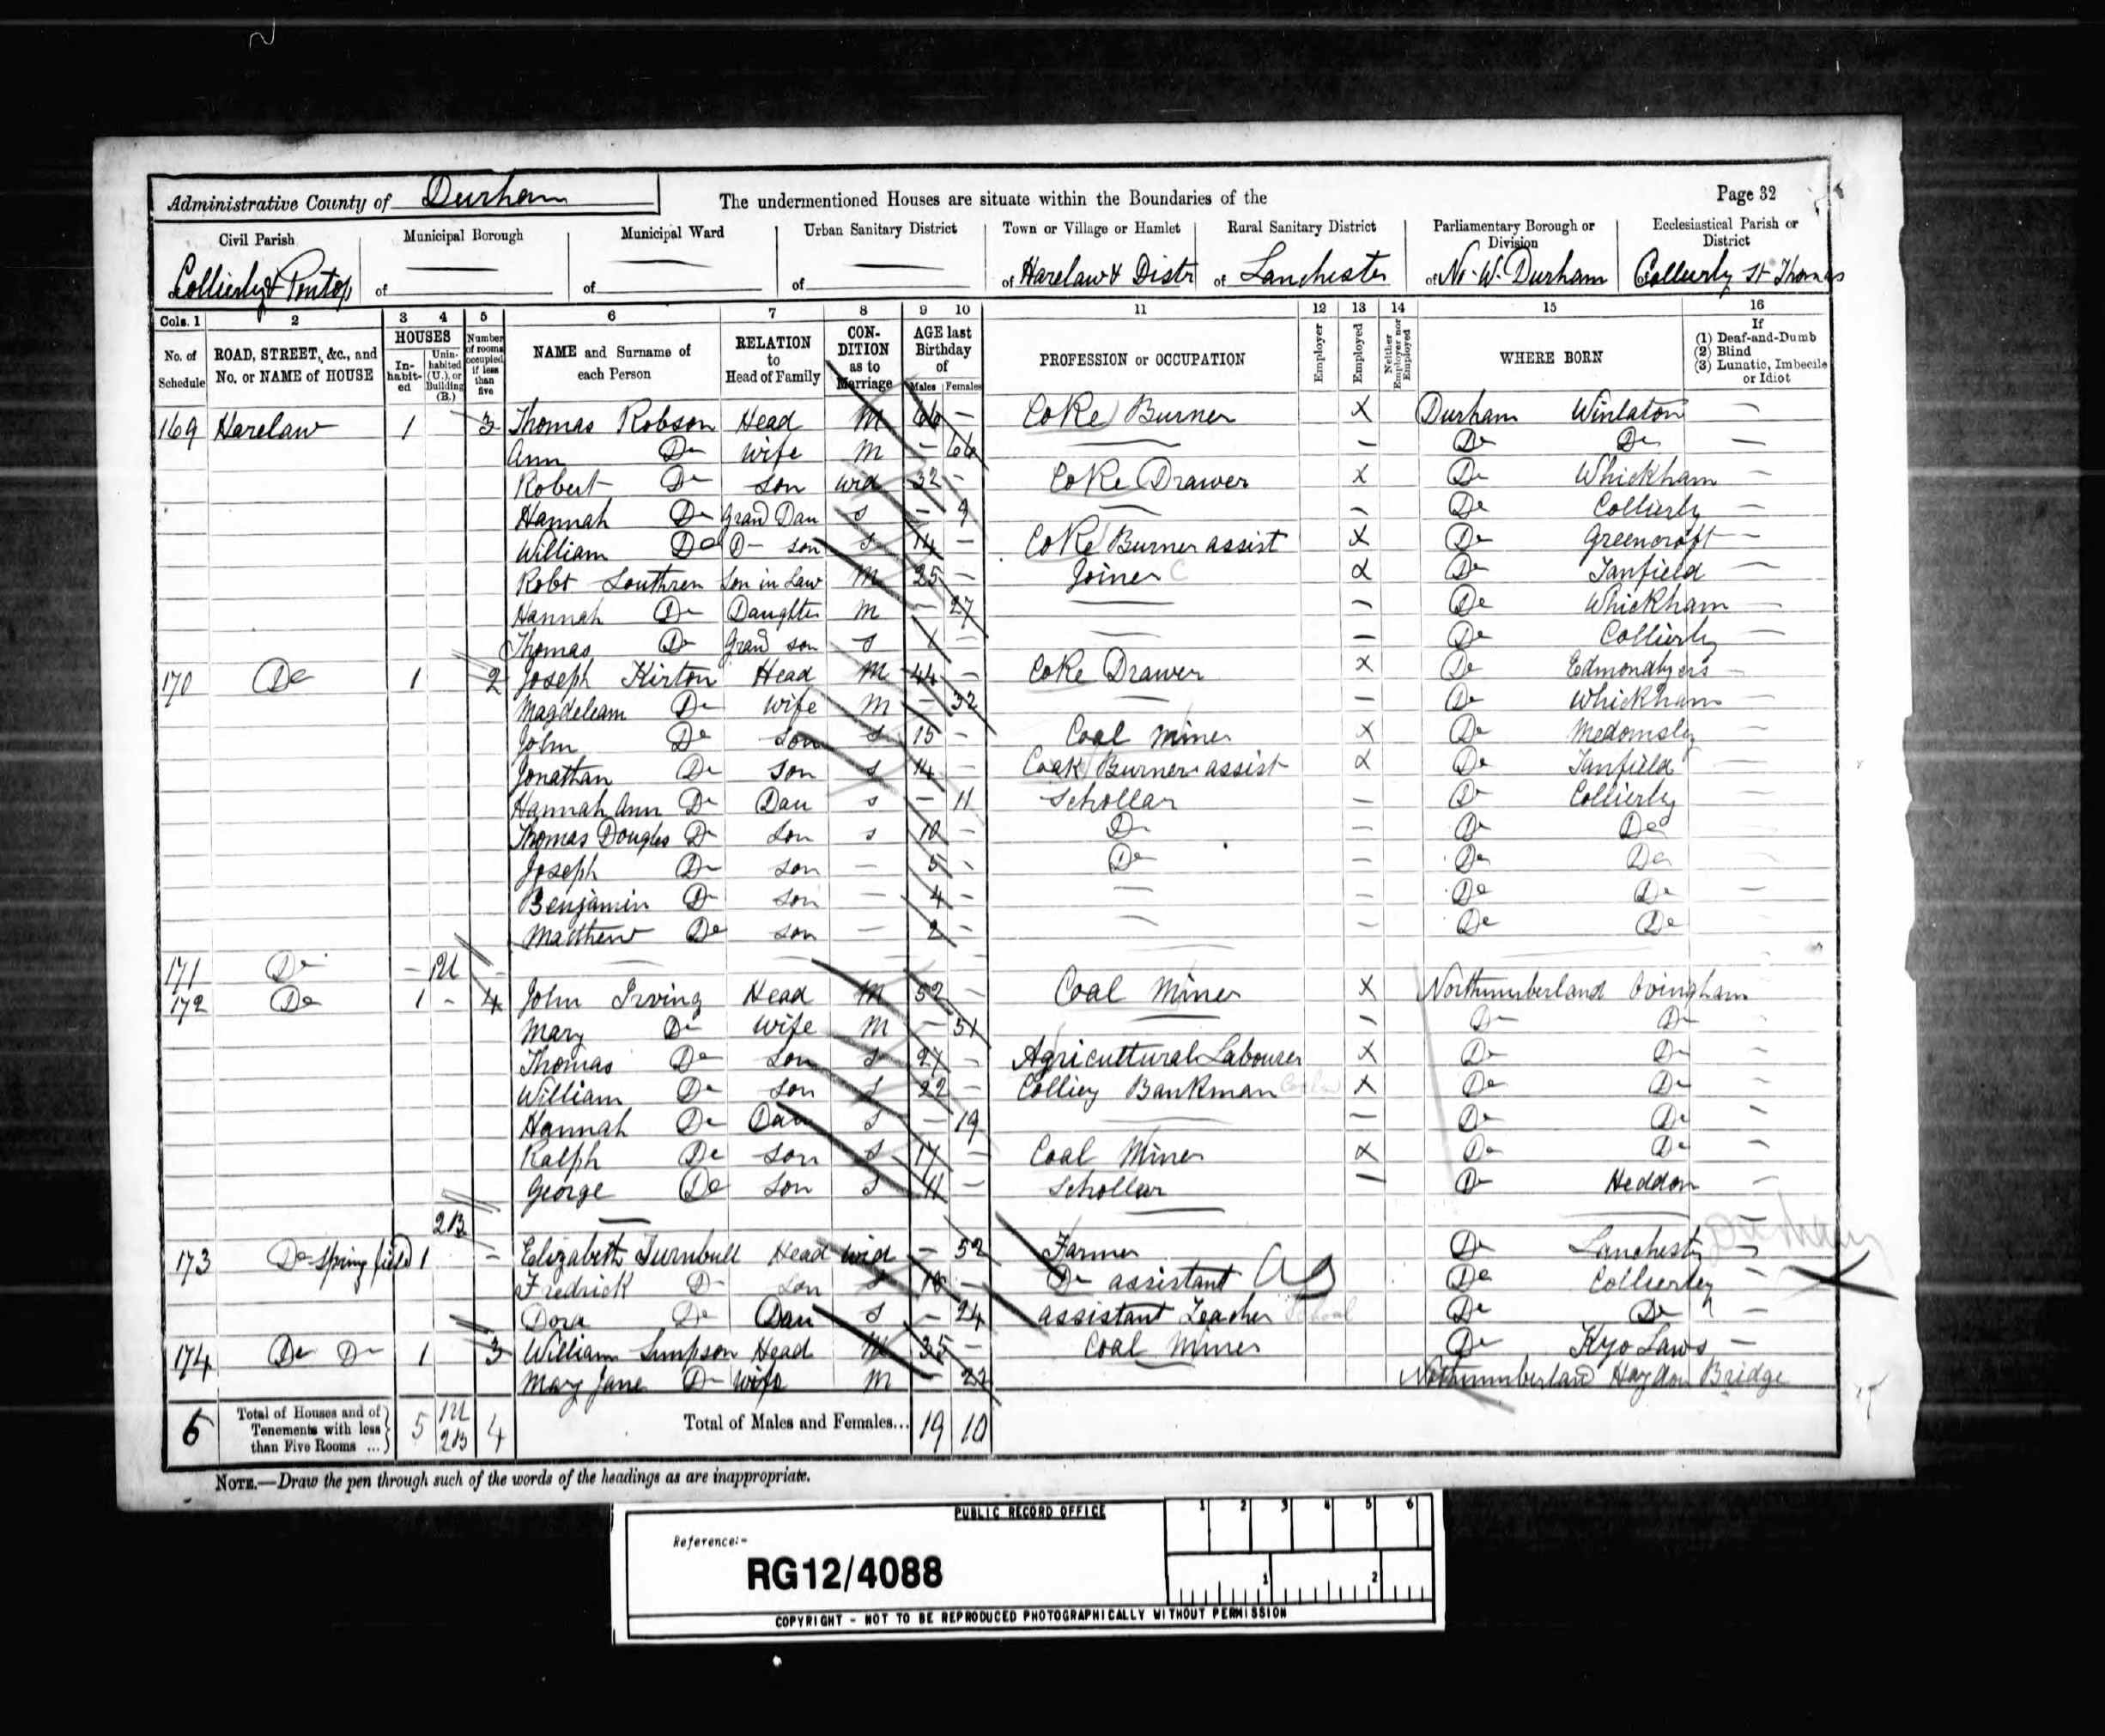 Administrative County of Durham The undermentioned Houses are situate within the Boundaries of the Page 32
Civil Parish Municipal Borough Municipal Ward Urban Sanitary District Town or Village or Hamlet Rural Sanitary District Parliamentary Borough or Division Ecclesiastical Parish or District
Collierly & Pontop of of of of Harelaw & Distr of Lanchester of N. W. Durham Collierly St Thomas
Cols. 1 2 3 4 5 6 7 8 9 10 11 12 13 14 15 16
No. of Schedule ROAD, STREET, &c., and No. or NAME of HOUSE HOUSES Inhabited Uninhabited (U.), or Building (B.) Number of rooms occupied if less than five NAME and Surname of each Person RELATION to Head of Family CONDITION as to Marriage AGE last Birthday of Males Females PROFESSION or OCCUPATION Employer Employed Neither Employer nor Employed WHERE BORN If (1) Deaf-and-Dumb (2) Blind (3) Lunatic, Imbecile or Idiot
169 Harelaw 1 3 Thomas Robson Head M 66 – Coke Burner X Durham Winlaton –
Ann Do Wife M – 66 – – Do Do –
Robert Do Son Wid 32 – Coke Drawer X Do Whickham –
Hannah Do Grand Dau S – 9 – – Do Collierly –
William Do Do son S 14 – Coke Burner assist X Do Greencroft –
Robt Southren Son in Law M 25 – Joiner X Do Tanfield –
Hannah Do Daughter M – 27 – – Do Whickham –
Thomas Do Grand son S 1 – – – Do Collierly –
170 Do 1 2 Joseph Kirton Head M 44 – Coke Drawer X Do Edmondbyers –
Magdeleam Do Wife M – 32 – – Do Whickham –
John Do Son S 15 – Coal Miner X Do Medomsley –
Jonathan Do Son S 14 – Coak Burner assist X Do Tanfield –
Hannah Ann Do Dau S – 11 Schollar – Do Collierly –
Thomas Douglas Do Son S 10 – Do – Do Do
Joseph Do Son – 5 – Do – Do Do
Benjamin Do Son – 4 – – – Do Do –
Matthew Do Son – 2 – – – Do Do
171 Do – 1U –
172 Do 1 – 4 John Irving Head M 52 – Coal Miner X Northumberland Ovingham
Mary Do Wife M – 51 – – Do Do
Thomas Do Son S 27 – Agricultural Labourer X Do Do –
William Do Son S 22 – Colliey Bankman X Do Do –
Hannah Do Dau S – 19 – – Do Do –
Ralph Do Son S 17 – Coal Miner X Do Do –
George Do Son S 11 – Schollar – Do Heddon –
2B
173 Do Springfield 1 – Elizabeth Turnbull Head Wid – 52 Farmer Do Lanchester Durham
Fredrick Do Son S – Do assistant Ag Do Collierley –
Dora Do Dau S – 24 assistant Teacher School Do Do –
174 Do Do 1 3 William Simpson Head M 35 – Coal Miner Do Kyo Laws –
Mary Jane Do Wife M – Northumberland Haydon Bridge
6 Total of Houses and of Tenements with less than Five Rooms ... 5 1U 2B 4 Total of Males and Females... 19 10
NOTE.—Draw the pen through such of the words of the headings as are inappropriate.
PUBLIC RECORD OFFICE 1 2 3 4 5 6
Reference:-
RG12/4088 1 2
COPYRIGHT - NOT TO BE REPRODUCED PHOTOGRAPHICALLY WITHOUT PERMISSION